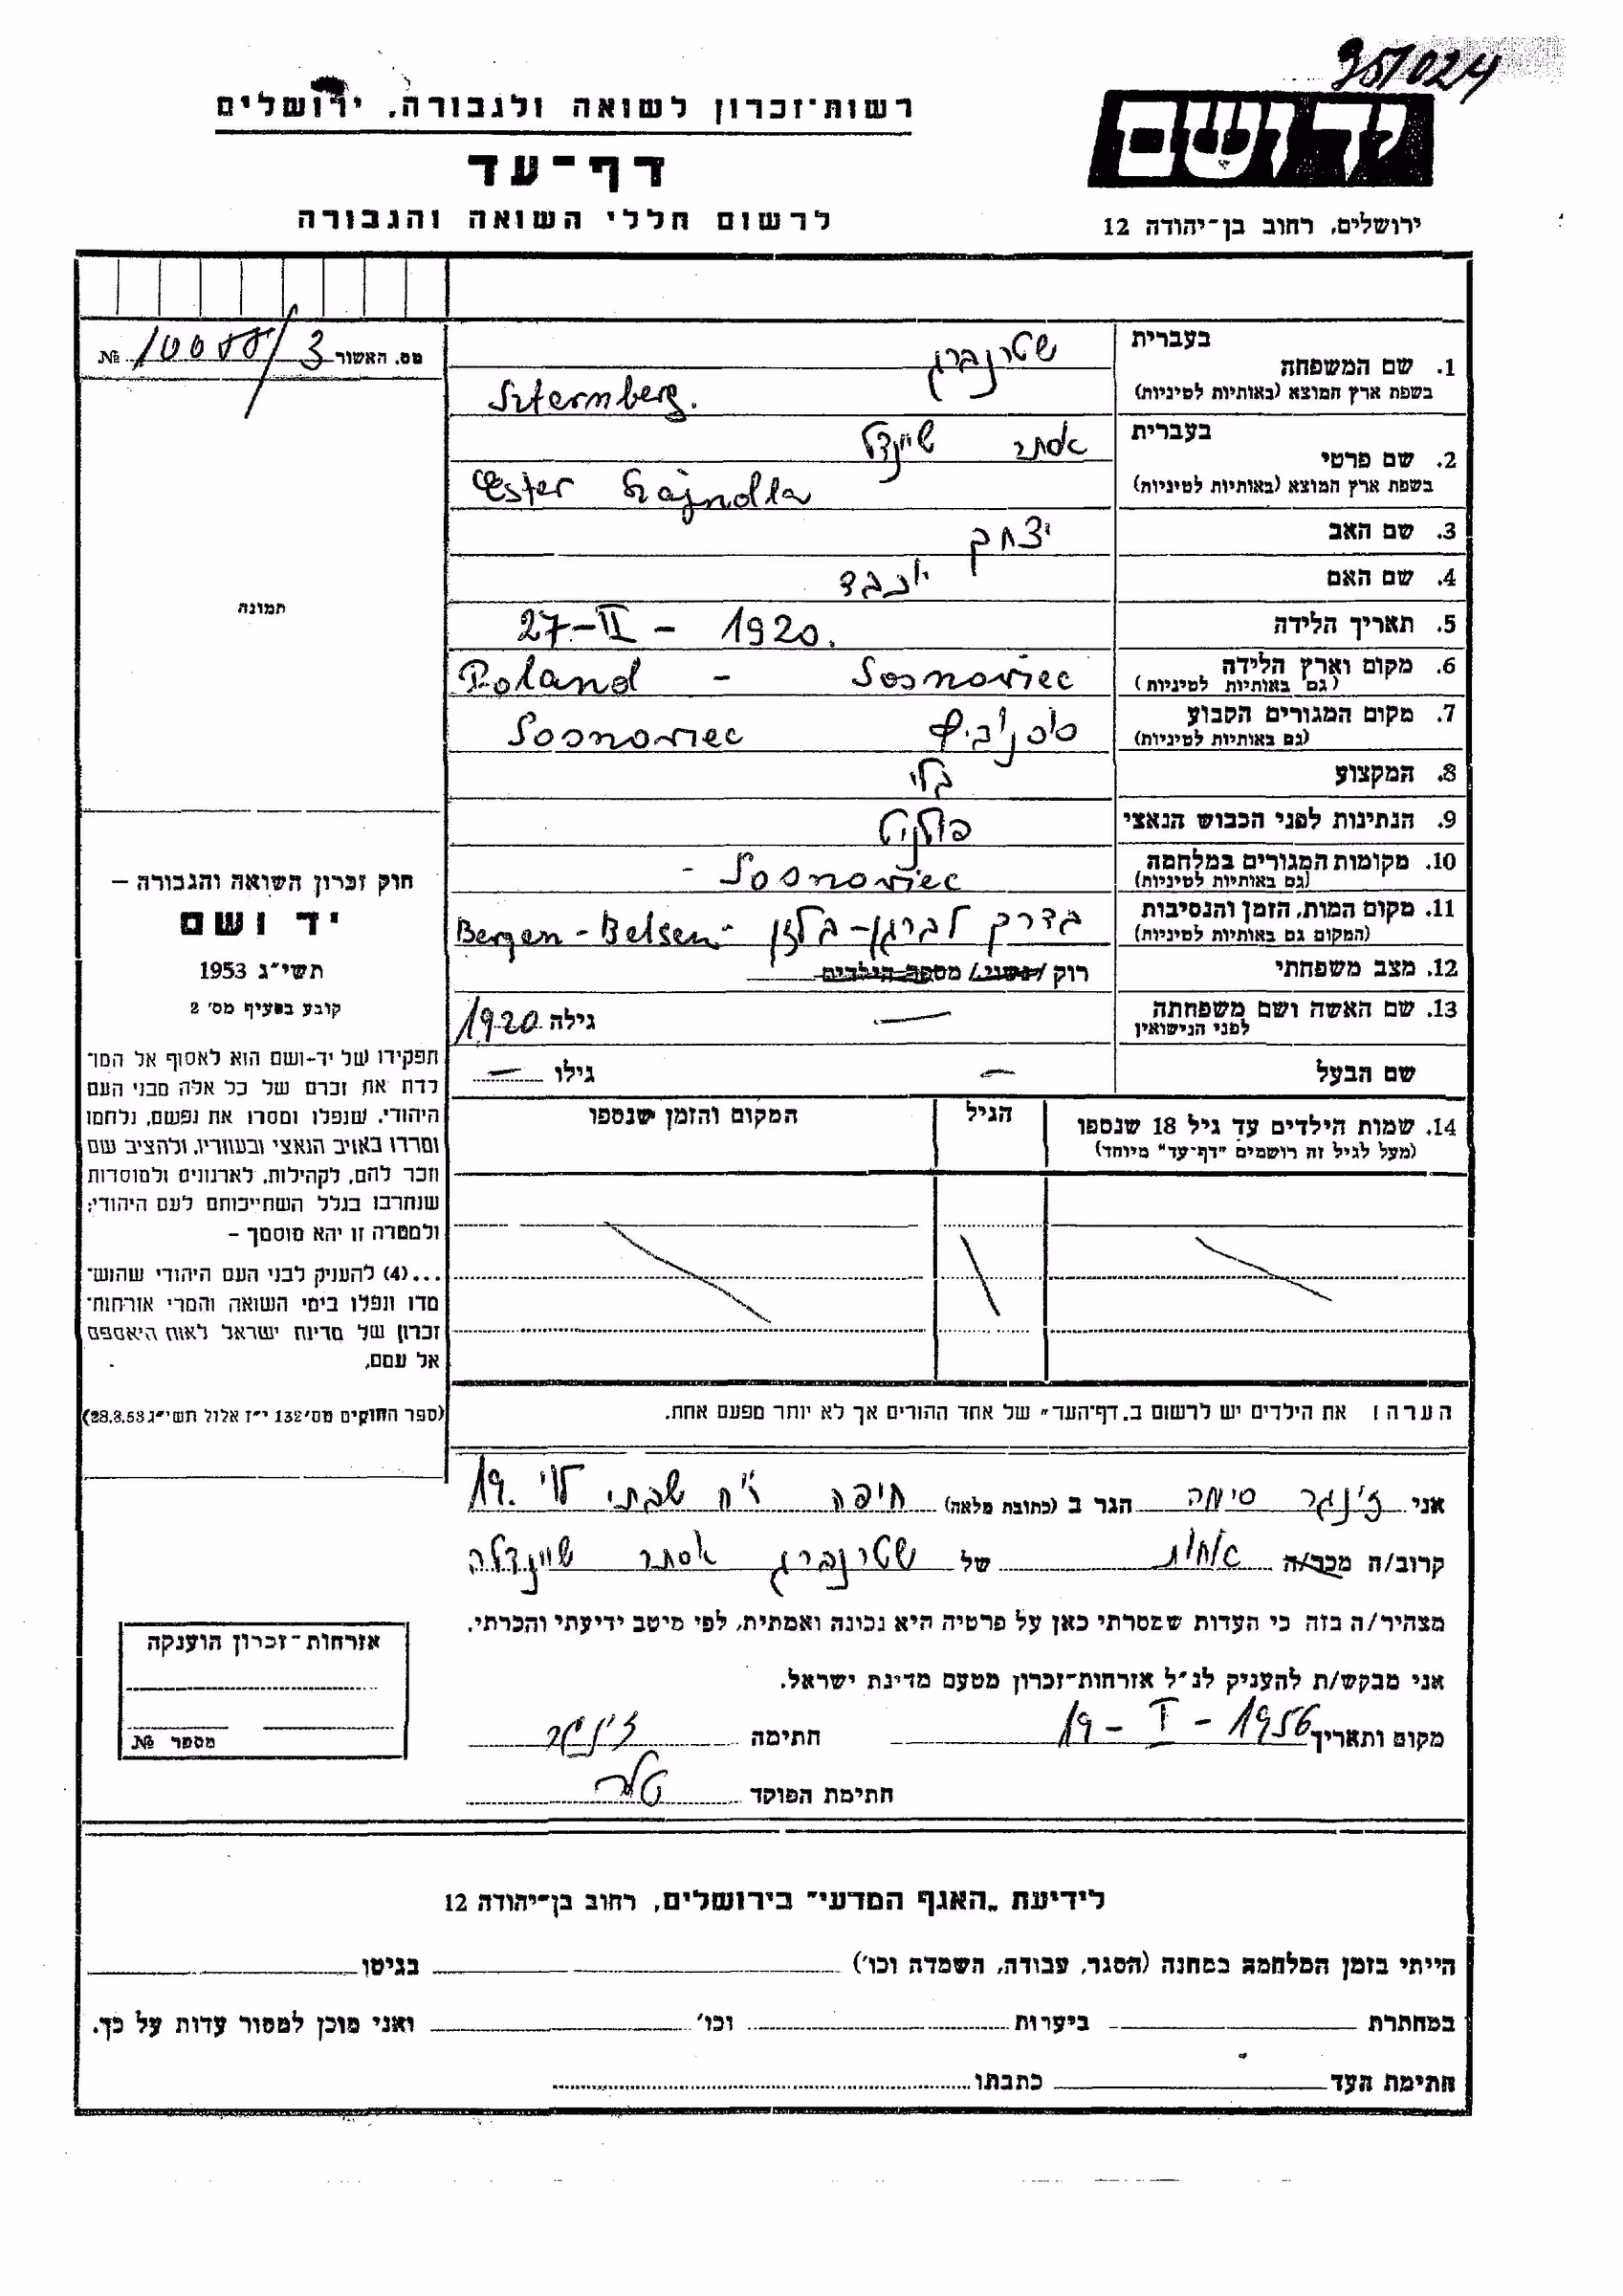 951024
רשות־זכרון לשואה ולגבורה, ירושלים
דף־עד
לרשום חללי השואה והגבורה
יד ושם
ירושלים, רחוב בן־יהודה 12
מס. האשור 3/ №
בעברית
1. שם המשפחה
בשפת ארץ המוצא (באותיות לטיניות)
שטרנברג
Szternberg.
בעברית
2. שם פרטי
בשפת ארץ המוצא (באותיות לטיניות)
אסתר שיינדל
Ester Szajndla
3. שם האב יצחק
4. שם האם יוכבד
5. תאריך הלידה 27-II - 1920.
6. מקום וארץ הלידה Poland - Sosnowiec
(גם באותיות לטיניות)
7. מקום המגורים הקבוע סוסנוביץ Sosnowiec
(גם באותיות לטיניות)
8. המקצוע בלי
9. הנתינות לפני הכבוש הנאצי פולנית
10. מקומות המגורים במלחמה Sosnowiec -
(גם באותיות לטיניות)
11. מקום המות, הזמן והנסיבות בדרך לברגן-בלזן Bergen-Belsen-
(המקום גם באותיות לטיניות)
12. מצב משפחתי רוק /נשוי/ מספר הילדים
13. שם האשה ושם משפחתה — גילה 1920
לפני הנישואין
שם הבעל — גילו —
14. שמות הילדים עד גיל 18 שנספו הגיל המקום והזמן שנספו
(מעל לגיל זה רושמים "דף־עד" מיוחד)
הערה: את הילדים יש לרשום ב„דף־העד" של אחד ההורים אך לא יותר מפעם אחת.
תמונה
חוק זכרון השואה והגבורה –
יד ושם
תשי״ג 1953
קובע בסעיף מס׳ 2
תפקידו של יד-ושם הוא לאסוף אל המו־
לדת את זכרם של כל אלה מבני העם
היהודי, שנפלו ומסרו את נפשם, נלחמו
ומרדו באויב הנאצי ובעוזריו, ולהציב שם
וזכר להם, לקהילות, לארגונים ולמוסדות
שנחרבו בגלל השתייכותם לעם היהודי;
ולמטרה זו יהא מוסמך –
...(4) להעניק לבני העם היהודי שהוש־
מדו ונפלו בימי השואה והמרי אזרחות־
זכרון של מדינת ישראל לאות היאספם
אל עמם.
(ספר החוקים מס׳ 132 י״ז אלול תשי״ג 28.8.53)
אני ז'ינגר סימה הגר ב (כתובת מלאה) חיפה רח שבתי לוי 19.
קרוב/ה מכר/ה אחות של שטרנברג אסתר שיינדלה
מצהיר/ה בזה כי העדות שמסרתי כאן על פרטיה היא נכונה ואמתית, לפי מיטב ידיעתי והכרתי.
אני מבקש/ת להעניק לנ״ל אזרחות־זכרון מטעם מדינת ישראל.
מקום ותאריך 19 - I - 1956 חתימה ז'ינגר
חתימת הפוקד
אזרחות־זכרון הוענקה
מספר №
לידיעת „האגף המדעי" בירושלים, רחוב בן־יהודה 12
הייתי בזמן המלחמה במחנה (הסגר, עבודה, השמדה וכו׳) בגיטו
במחתרת ביערות וכו׳ ואני מוכן למסור עדות על כך.
חתימת העד כתבתו